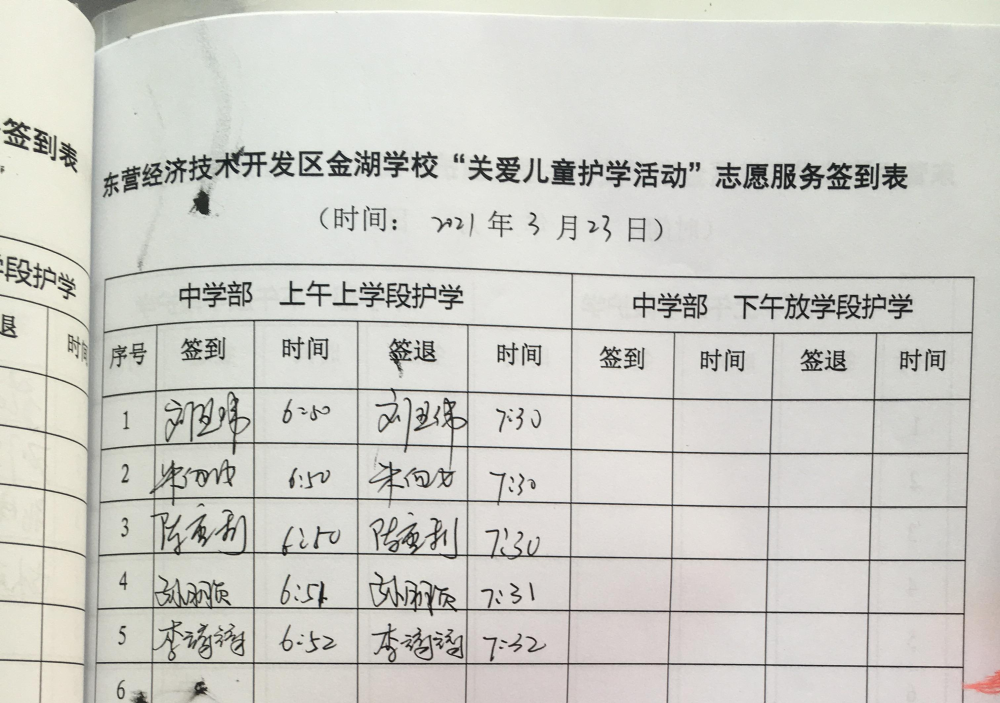 签到表
段护学
退
时间
东营经济技术开发区金湖学校“关爱儿童护学活动”志愿服务签到表
（时间： 2021 年 3 月 23 日）
中学部 上午上学段护学 中学部 下午放学段护学
序号 签到 时间 签退 时间 签到 时间 签退 时间
1 刘 6:50 刘 7:30
2 朱 6:50 朱 7:30
3 陈 6:50 陈 7:30
4 孙 6:51 孙 7:31
5 李 6:52 李 7:32
6